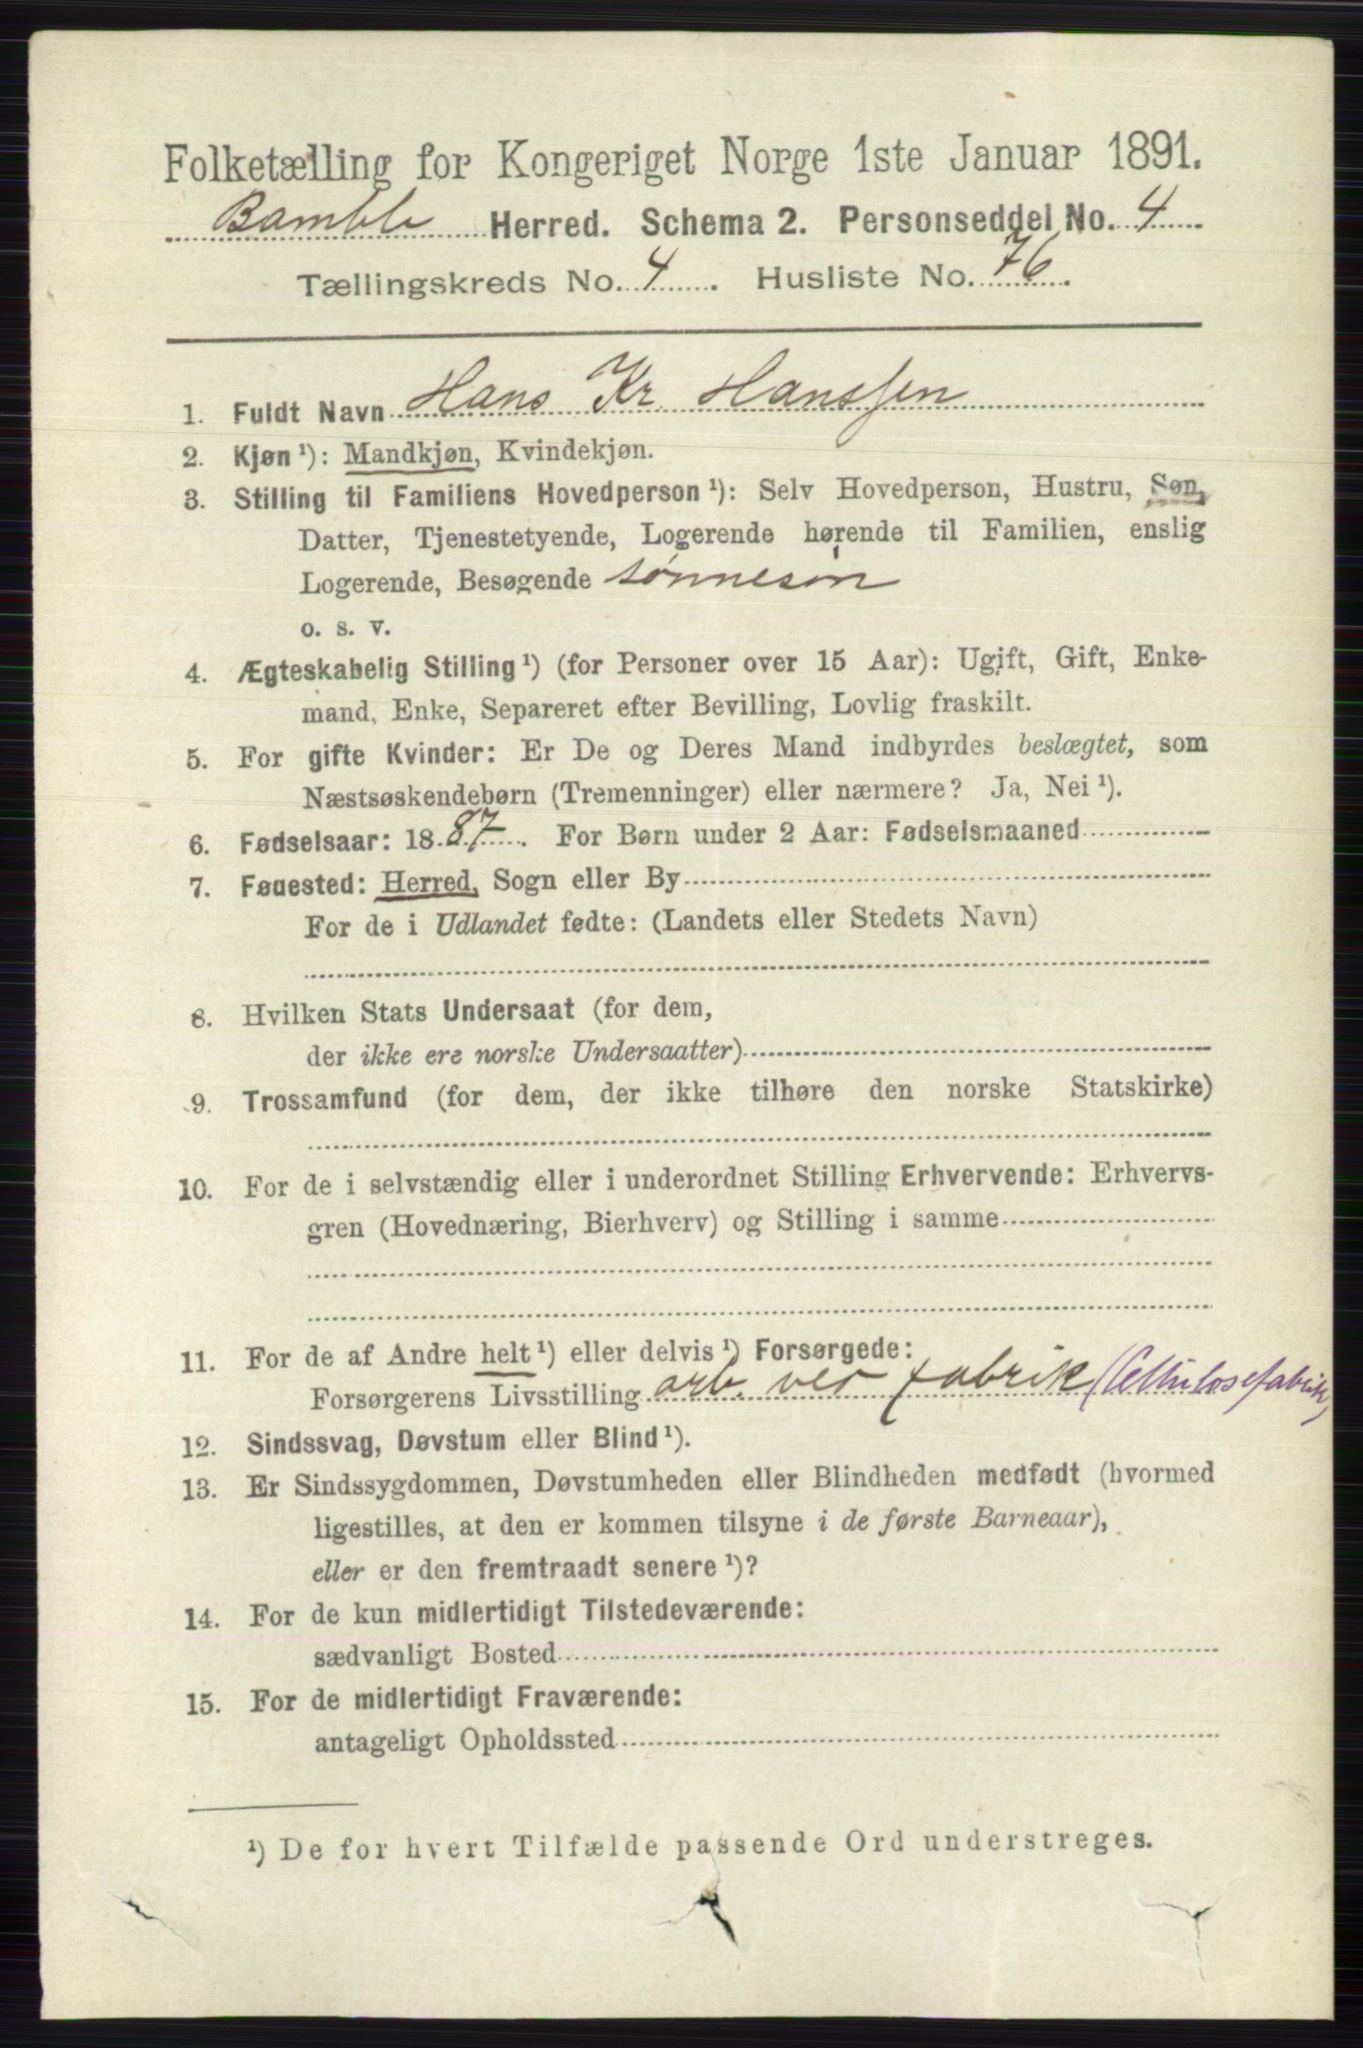 Folketælling for Kongeriget Norge 1ste Januar 1891.
Bamble Herred. Schema 2. Personseddel No. 4
Tællingskreds No. 4. Husliste No. 76.
1. Fuldt Navn Hans Kr Hanssen
2. Kjøn ¹): Mandkjøn, Kvindekjøn.
3. Stilling til Familiens Hovedperson ¹): Selv Hovedperson, Hustru, Søn,
Datter, Tjenestetyende, Logerende hørende til Familien, enslig
Logerende, Besøgende sønnesøn
o. s. v.
4. Ægteskabelig Stilling ¹) (for Personer over 15 Aar): Ugift, Gift, Enke-
mand, Enke, Separeret efter Bevilling, Lovlig fraskilt.
5. For gifte Kvinder: Er De og Deres Mand indbyrdes beslægtet, som
Næstsøskendebørn (Tremenninger) eller nærmere? Ja, Nei ¹).
6. Fødselsaar: 1887. For Børn under 2 Aar: Fødselsmaaned
7. Fødested: Herred, Sogn eller By
For de i Udlandet fødte: (Landets eller Stedets Navn)
8. Hvilken Stats Undersaat (for dem,
der ikke ere norske Undersaatter)
9. Trossamfund (for dem, der ikke tilhøre den norske Statskirke)
10. For de i selvstændig eller i underordnet Stilling Erhvervende: Erhvervs-
gren (Hovednæring, Bierhverv) og Stilling i samme
11. For de af Andre helt ¹) eller delvis ¹) Forsørgede:
Forsørgerens Livsstilling arb. ved fabrik (Cellulosefabrik)
12. Sindssvag, Døvstum eller Blind ¹).
13. Er Sindssygdommen, Døvstumheden eller Blindheden medfødt (hvormed
ligestilles, at den er kommen tilsyne i de første Barneaar),
eller er den fremtraadt senere ¹)?
14. For de kun midlertidigt Tilstedeværende:
sædvanligt Bosted
15. For de midlertidigt Fraværende:
antageligt Opholdssted
¹) De for hvert Tilfælde passende Ord understreges.